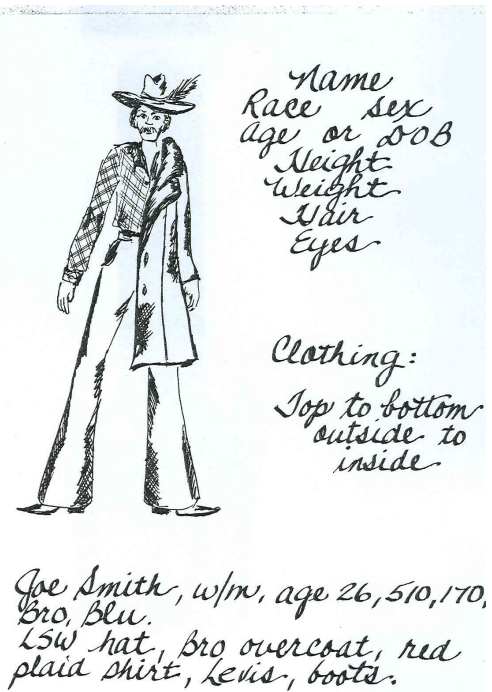 Name
Race sex
Age or DOB
Height
Weight
Hair
Eyes
Clothing:
Top to bottom
outside to
inside
Joe Smith, w/m, age 26, 510, 170,
Bro, Blu.
LSW hat, Bro overcoat, red
plaid shirt, Levis, boots.